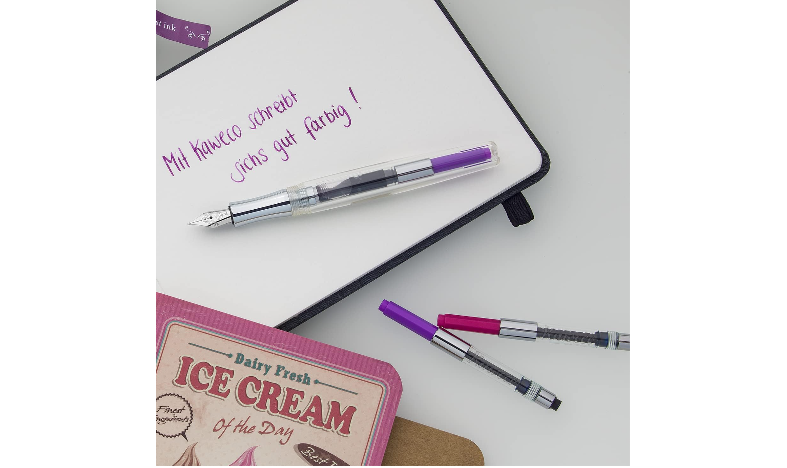 ink
Mit Kaweco schreibt
sichs gut farbig!
Dairy Fresh
ICE CREAM
Of the Day
Finest
Best